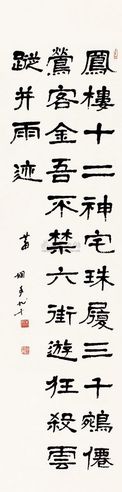 鳳樓十二神宅珠履三千鵷僊
鶯客金吾不禁六街遊狂殺雲
蹤并雨迹